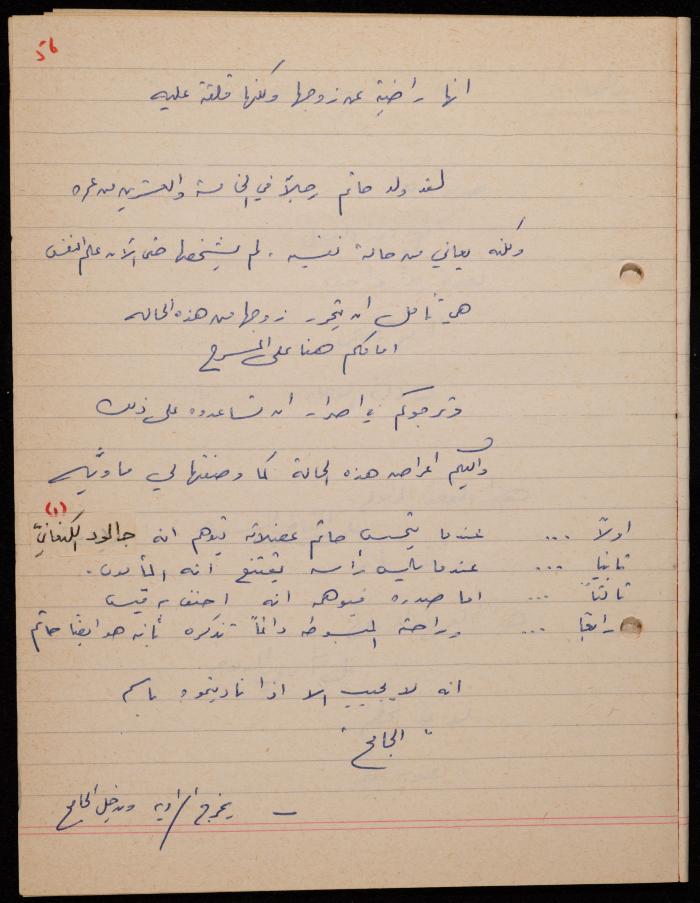 ٥٦
انها راضية عن زوجها ولكنها قلقة عليه
لقد ولد حاتم رجلاً في الخامسة والعشرين من عمره
ولكنه يعاني من حالة نفسيه . لم يشخصها حتى الآن علم النفس
هي تأمل ان يتحرر زوجها من هذه الحاله
امامكم هنا على المسرح
وترجوكم في اصرار ان تساعدوه على ذلك
واليكم اعراض هذه الحالة كما وصفتها لي ماويّه
اولاً ... عندما يتحسس حاتم عضلاته يتوهم انه جالود الكنعانيّ (١)
ثانياً ... عندما يلمس رأسه يقتنع انه المأمون .
ثالثاً ... اما صدره فيوهمه انه احنف بن قيس
رابعاً ... وراحته المبسوطه دائماً تذكره بأنه هو ايضاً حاتم
انه لا يجيب الا اذا ناديتموه باسم
" الجامح "
ـ يخرج الراويه ويدخل الجامح